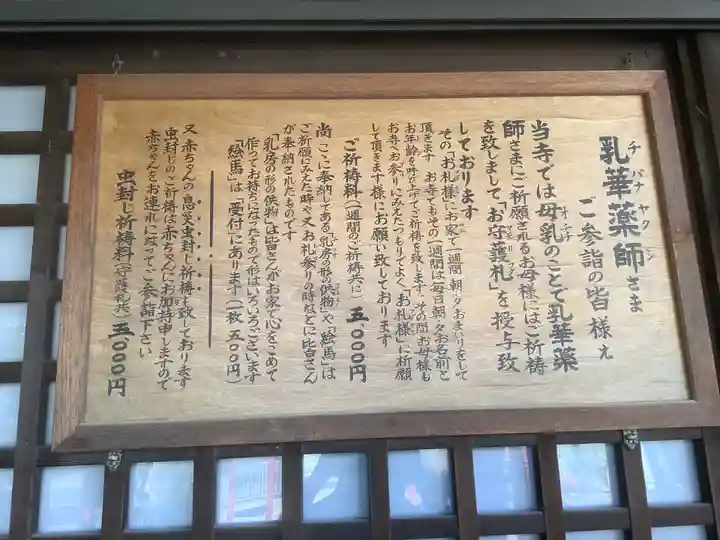 乳華薬師さま
チバナヤクシ
ご参詣の皆様え
当寺では母乳のことで乳華薬
師さまにご祈願されるお母様にはご祈祷
を致しまして「お守護札」を授与致
しております
その「お札様」にお家で一週間朝・夕おまいりをして
頂きます お寺でもその一週間は毎日朝・夕お名前と
お年齢を呼び上げてご祈祷を致します その間お母様も
お寺へお参りにみえたつもりでよく「お札様」に祈願
して頂きます様にお願い致しております
ご祈祷料(一週間のご祈祷共に)五、〇〇〇円
尚 ここに奉納してある「乳房の形の供物」や「絵馬」は
ご祈願にみえた時や又お礼参りの時などに皆さん
が奉納されたものです
「乳房の形の供物」は皆さんがお家で心をこめて
作ってお持ちになったもので形はいろいろございます
「絵馬」は受付にあります(一枚 五〇〇円)
又 赤ちゃんの息災虫封じ祈祷も致しております
虫封じのご祈祷は赤ちゃんにお加持申しますので
赤ちゃんをお連れになってご参詣下さい
虫封じ祈祷料(守護札共)五、〇〇〇円